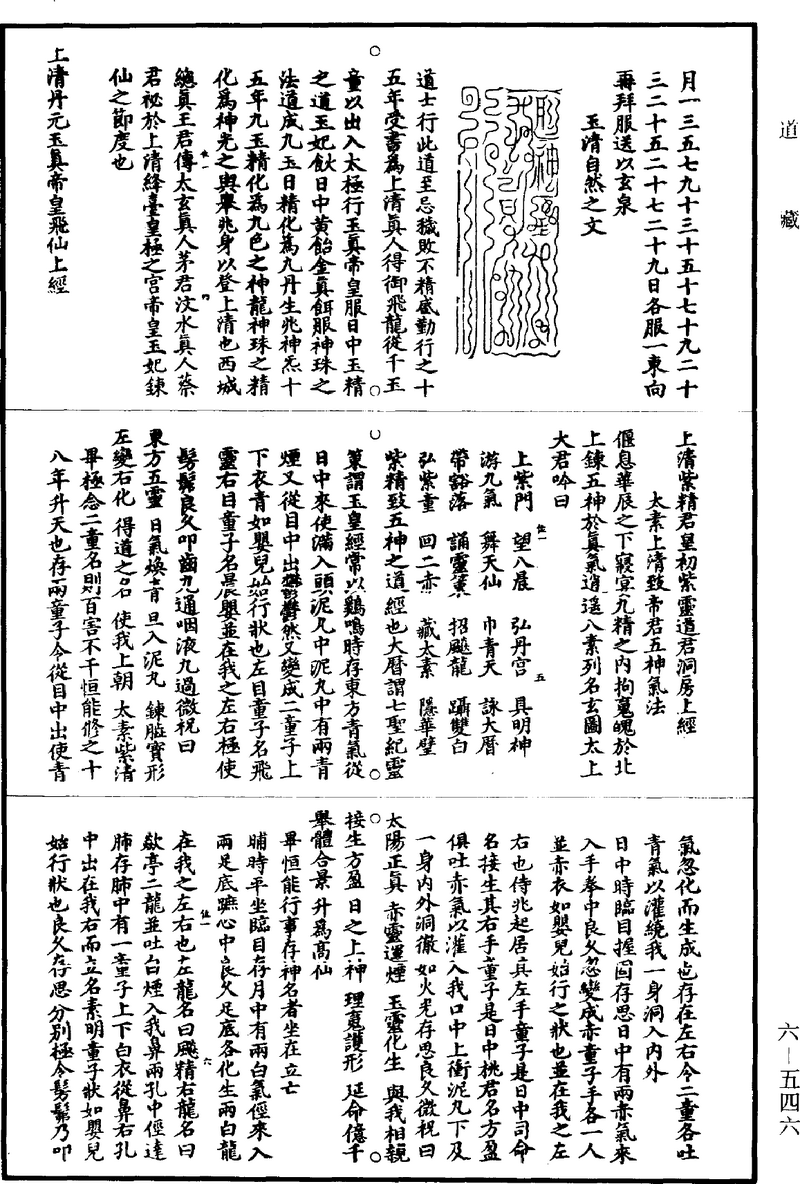 道藏
月一三五七九十三十五十七十九二十
三二十五二十七二十九日各服一東向
再拜服送以玄泉
玉清自然之文
道士行此道至忌穢敗不精感勤行之十
五年受書為上清真人得御飛龍從千玉
童以出入太極行玉真帝皇服日中玉精
之道玉妃飲日中黃飴金真餌服神珠之
法道成九玉日精化為九丹生兆神炁十
五年九玉精化為九色之神龍神珠之精
化為神光之輿舉兆身以登上清也西城
總真王君傳太玄真人茅君汶水真人蔡
君祕於上清絳臺皇極之宮帝皇玉妃鍊
仙之節度也
上清丹元玉真帝皇飛仙上經
上清紫精君皇初紫靈道君洞房上經
太素上清致帝君五神氣法
偃息華辰之下寢冥九精之內拘魂魄於北
上鍊五神於真氣逍遥八素列名玄圖太上
大君吟曰
上紫門 望八晨 弘丹宮 具明神
游九氣 舞天仙 巾青天 詠大曆
帶豁落 誦靈篇 招飈龍 躡雙白
弘紫童 回二赤 藏太素 隱華壁
紫精致五神之道經也大曆謂七聖紀靈
篇謂玉皇經常以雞鳴時存東方青氣從
日中來使滿入頭泥丸中泥丸中有兩青
煙又從目中出鬱鬱然又變成二童子上
下衣青如嬰兒始行狀也左目童子名飛
靈右目童子名晨嬰並在我之左右極使
髣髴良久叩齒九通咽液九過微祝曰
東方五靈 日氣煥青 旦入泥丸 鍊腦寶形
左變右化 得道之名 使我上朝 太素紫清
畢極念二童名則百害不干恒能修之十
八年升天也存兩童子令從目中出使青
氣忽化而生成也存在左右令二童各吐
青氣以灌繞我一身洞入內外
日中時臨目握固存思日中有兩赤氣來
入手拳中良久忽變成赤童子手各一人
並赤衣如嬰兒始行之狀也並在我之左
右也侍兆起居具左手童子是日中司命
名接生其右手童子是日中桃君名方盈
俱吐赤氣以灌入我口中上衝泥丸下及
一身內外洞徹如火光存思良久微祝曰
太陽正真 赤靈運煙 玉靈化生 與我相親
接生方盈 日之上神 理魂護形 延命億千
舉體合景 升為高仙
畢恒能行事存神名者坐在立亡
晡時平坐臨目存月中有兩白氣徑來入
兩足底蹠心中良久足底各化生兩白龍
在我之左右也左龍名曰飈精右龍名曰
歘亭二龍並吐白煙入我鼻兩孔中徑達
肺存肺中有一童子上下白衣從鼻右孔
中出在我右而立名素明童子狀如嬰兒
始行狀也良久存思分別極令髣髴乃叩
六一五四六